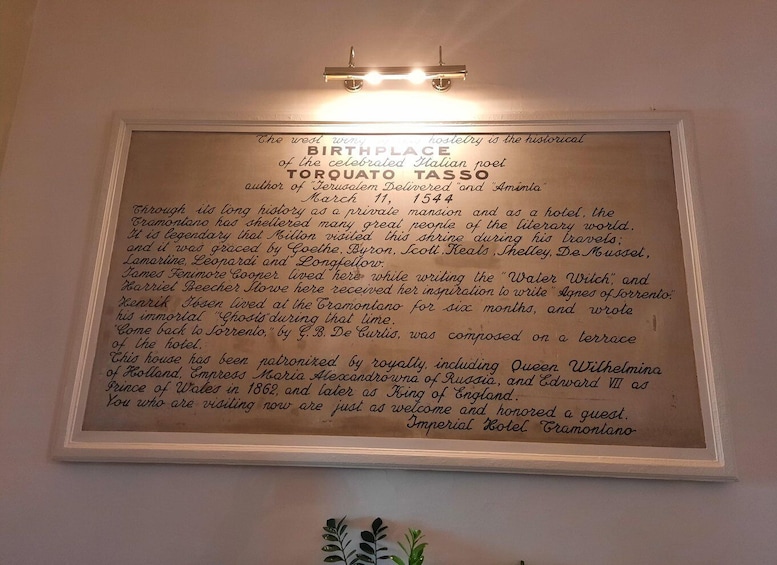 The west wing hostelry is the historical
BIRTHPLACE
of the celebrated Italian poet
TORQUATO TASSO
author of "Jerusalem Delivered" and "Aminta"
March 11, 1544
Through its long history as a private mansion and as a hotel, the
Tramontano has sheltered many great people of the literary world.
It is legendary that Milton visited this shrine during his travels;
and it was graced by Goethe, Byron, Scott, Keats, Shelley, De Musset,
Lamartine, Leopardi and Longfellow.
James Fenimore Cooper lived here while writing the "Water Witch", and
Harriet Beecher Stowe here received her inspiration to write "Agnes of Sorrento."
Henrik Ibsen lived at the Tramontano for six months, and wrote
his immortal "Ghosts" during that time.
"Come back to Sorrento," by G. B. De Curtis, was composed on a terrace
of the hotel.
This house has been patronized by royalty, including Queen Wilhelmina
of Holland, Empress Maria Alexandrowna of Russia, and Edward VII as
Prince of Wales in 1862, and later as King of England.
You who are visiting now are just as welcome and honored a guest.
Imperial Hotel Tramontano